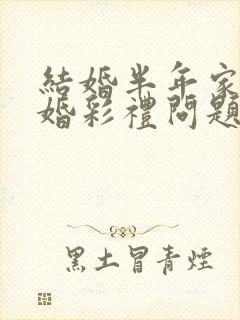 結婚半年家
婚彩禮問題
黑土冒青煙